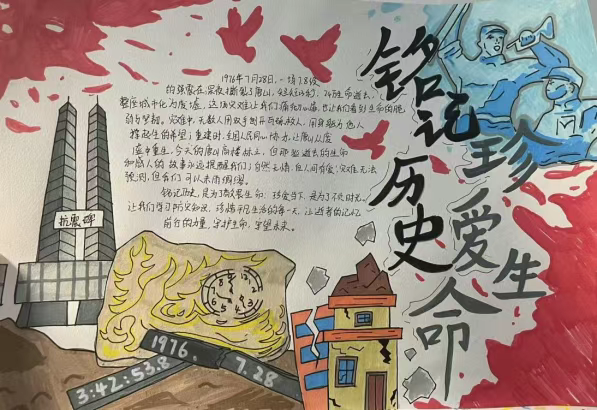 铭记历史
珍爱生命
1976年7月28日,一场7.8级
的强震在深夜撕裂了唐山,短短23秒,24万生命逝去,
整座城市化为废墟。这场灾难让我们痛彻心痛,也让我们看到生命的脆
弱与坚韧。灾难中,无数人用双手刨开
撑起生的希望;重建时,全国人民同心协力,让唐山从废
墟中重生。今天的唐山高楼林立,但那些逝去的生命
和感人的故事永远提醒我们:自然无情,但人间有爱;灾难无法
预测,但我们可以未雨绸缪。
铭记历史,是为了敬畏生命;珍爱当下,是为了不负时光。
让我们学习防灾知识,珍惜平凡生活的每一天,让逝者的记忆
前行的力量,守护生命,守望未来。
抗震碑
12
1976.
7.28
3:42:53.8